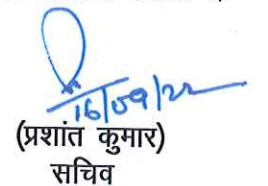 16/09/22
(प्रशांत कुमार)
सचिव